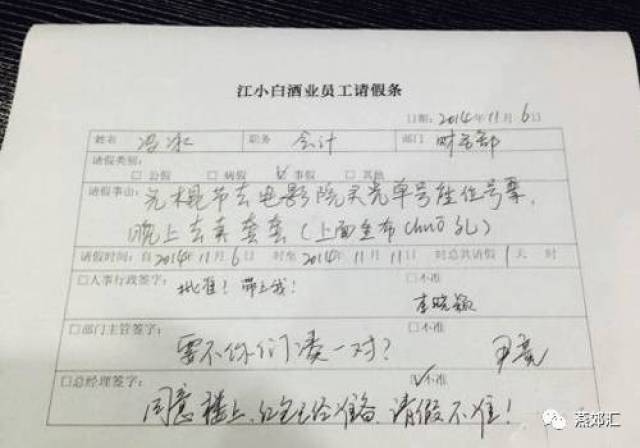 江小白酒业员工请假条
日期：2014年11月6日
姓名 冯冰 职务 会计 部门 财务部
请假类别：
□公假 □病假 ☑事假 □其他
请假事由：光棍节去电影院买光单号座位号票，
晚上去卖套套（上面全布chuō孔）
请假时间：自2014年11月6日 时至2014年11月11日 时总共请假1天 时
□人事行政签字： □不准
批准！带上我！ 李晓颖
□部门主管签字： □不准
要不你们凑一对？ 尹亮
□总经理签字： ☑不准
同意楼上，红包已经准备，请假不准！
燕郊汇